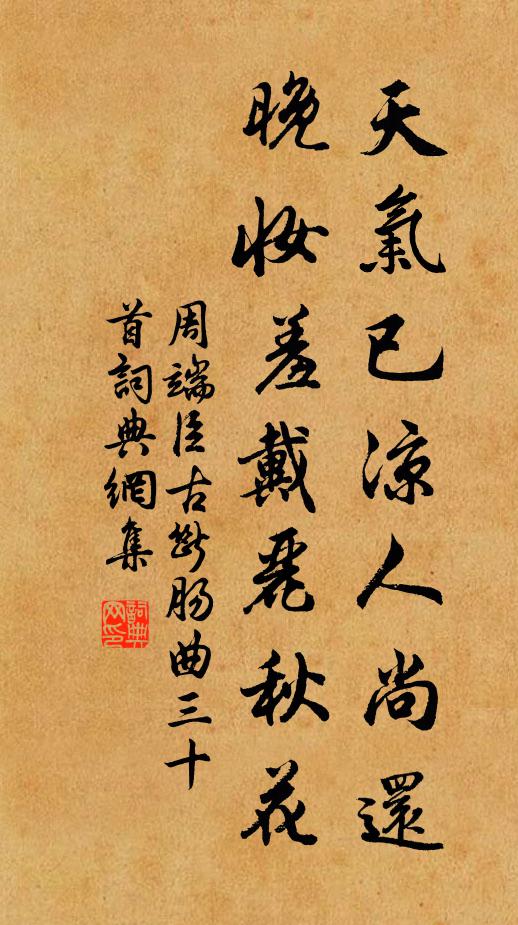 天氣已涼人尚還
晚妝羞戴麗秋花
周端臣古斷腸曲三十
首詞典網集
詞典
网印